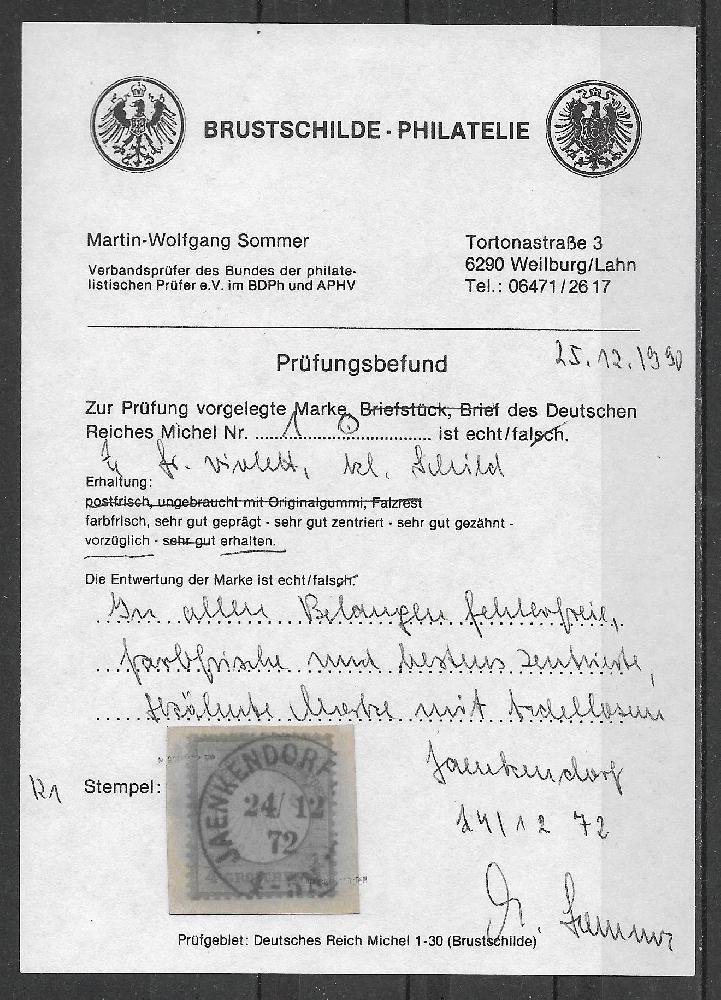 BRUSTSCHILDE - PHILATELIE
Martin-Wolfgang Sommer
Verbandsprüfer des Bundes der philate-
listischen Prüfer e.V. im BDPh und APHV
Tortonastraße 3
6290 Weilburg/Lahn
Tel.: 06471/26 17
25.12.1990
Prüfungsbefund
Zur Prüfung vorgelegte Marke, Briefstück, Brief des Deutschen
Reiches Michel Nr. 1 ist echt/falsch.
¼ Gr. violett, kl. Schild
Erhaltung:
postfrisch, ungebraucht mit Originalgummi, Falzrest
farbfrisch, sehr gut geprägt - sehr gut zentriert - sehr gut gezähnt -
vorzüglich - sehr gut erhalten.
Die Entwertung der Marke ist echt/falsch.
In allen Belangen fehlerfreie,
farbfrische und bestens zentrierte,
gezähnte Marke mit tadellosem
K1 Stempel:
JAENKENDORF
24/12
72
Jaenkendorf
24/12 72
M. Sommer
Prüfgebiet: Deutsches Reich Michel 1-30 (Brustschilde)